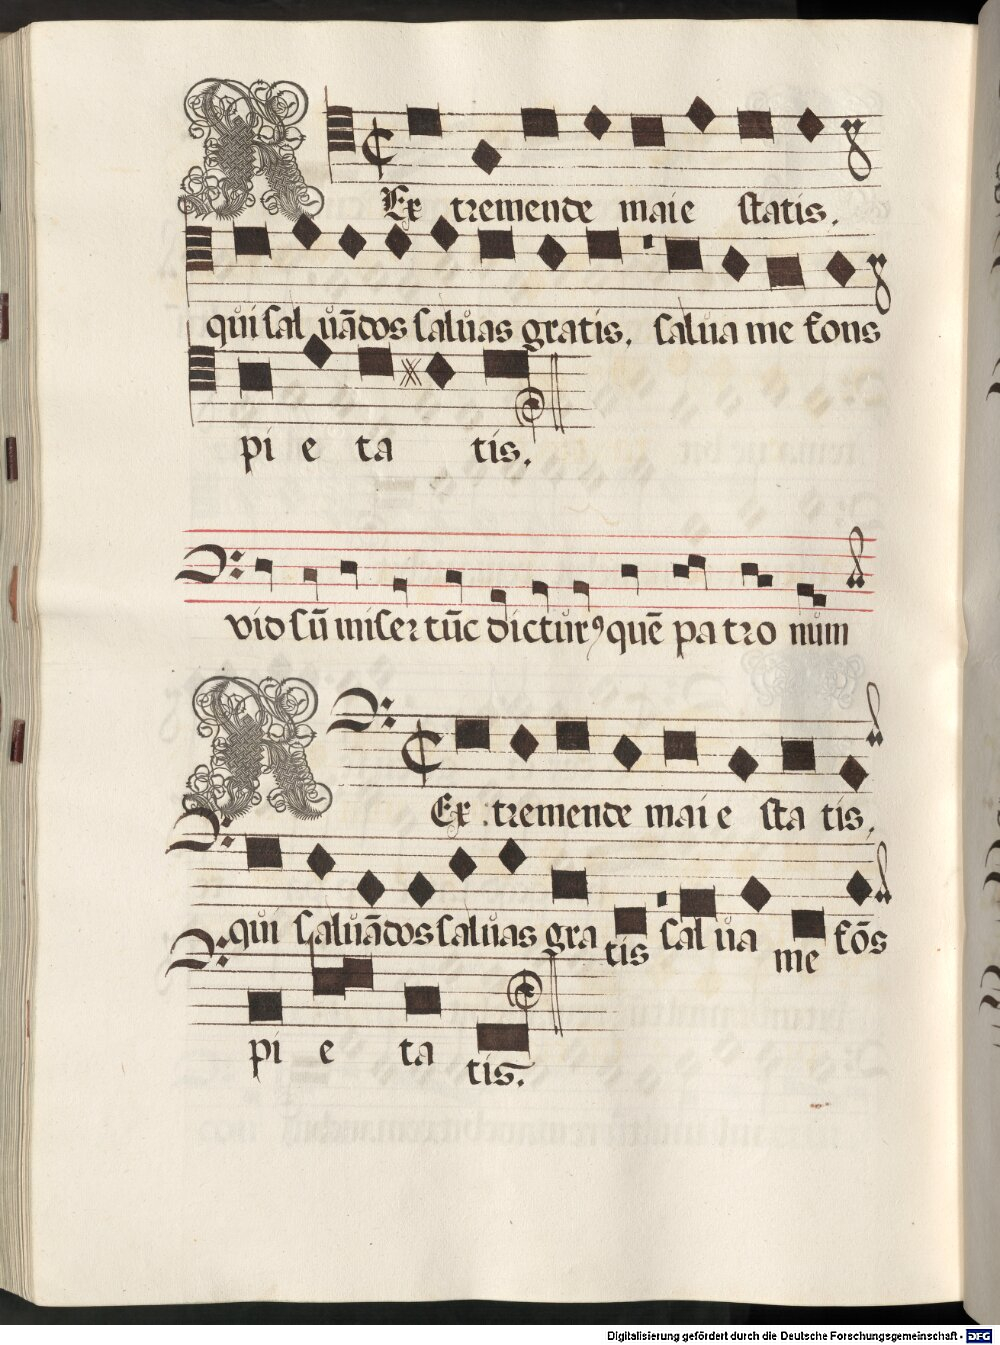 REx tremende maie statis.
qui sal uãdos saluas gratis. salua me fons
pi e ta tis.
vid sũ miser tũc dicturꝰ quẽ pa tro num
REx tremende mai e sta tis.
qui saluãdos saluas gra tis sal ua me fõs
pi e ta tis.
Digitalisierung gefördert durch die Deutsche Forschungsgemeinschaft - DFG